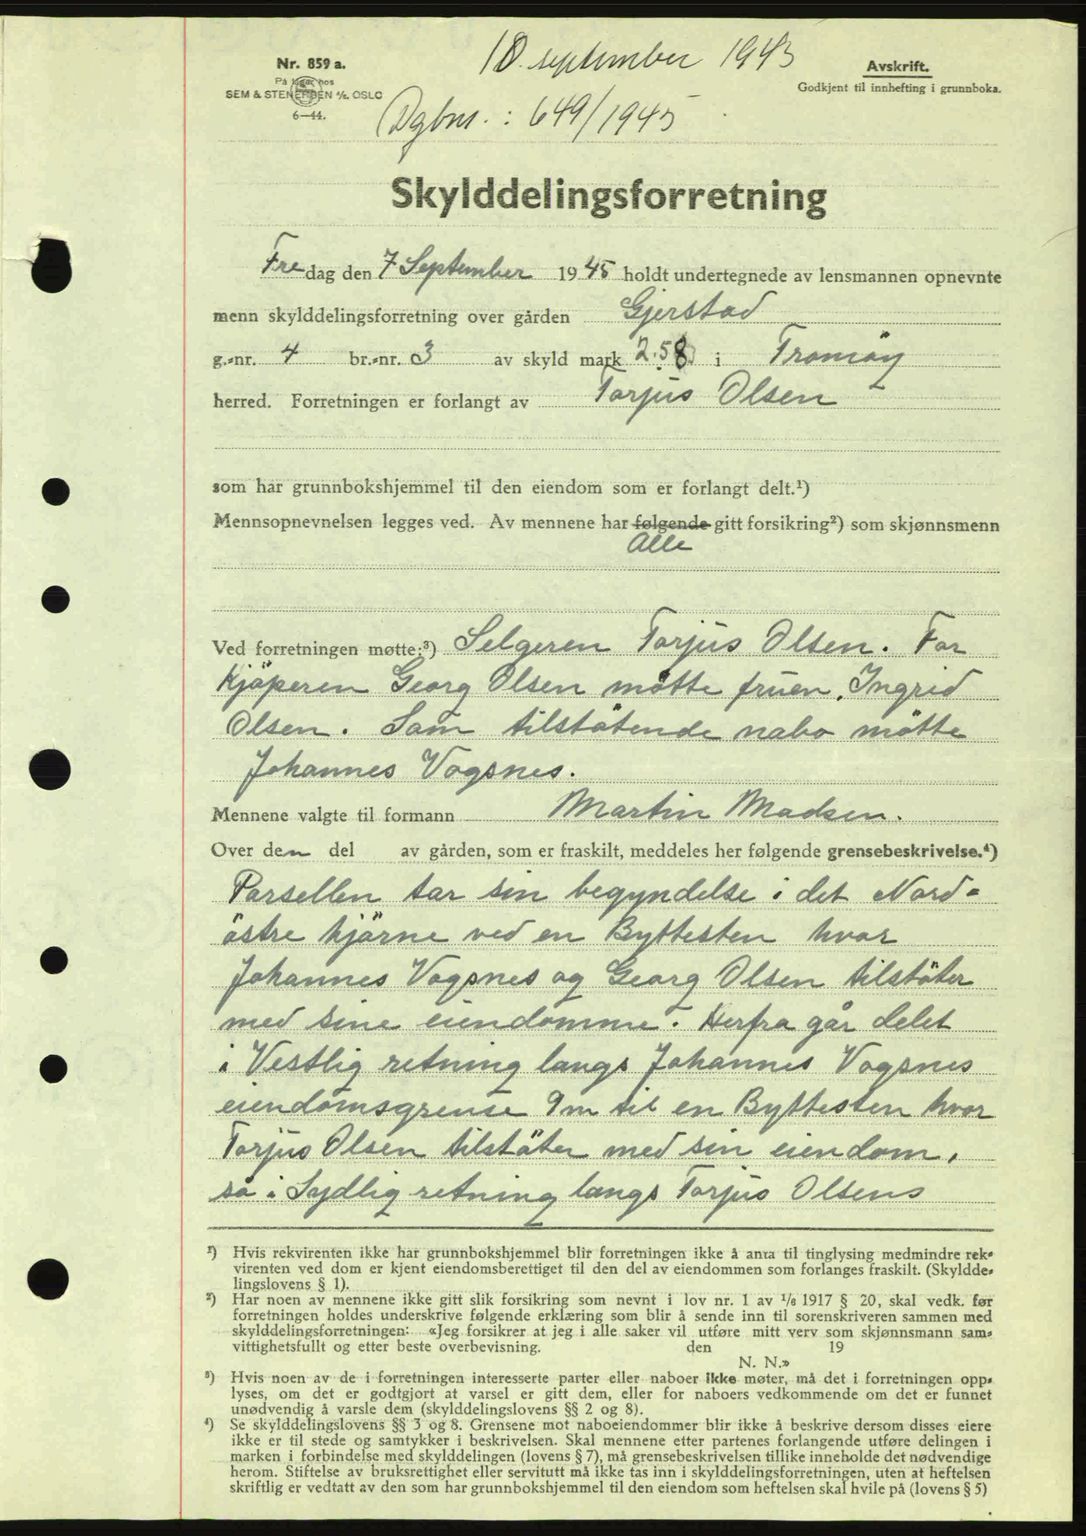 Nr. 859 a.
På lager hos
SEM & STENERSEN A/S, OSLO
6—44.
18. september 1945
Dgbnr.: 649/1945
Avskrift.
Godkjent til innhefting i grunnboka.
Skylddelingsforretning
Fredag den 7 September 1945 holdt undertegnede av lensmannen opnevnte
menn skylddelingsforretning over gården Gjerstad
g.-nr. 4 br.-nr. 3 av skyld mark 2.58 i Tromöy
herred. Forretningen er forlangt av Torjus Olsen
som har grunnbokshjemmel til den eiendom som er forlangt delt.¹)
Mennsopnevnelsen legges ved. Av mennene har følgende gitt forsikring²) som skjønnsmenn
Alle
Ved forretningen møtte:³) Selgeren Torjus Olsen. For
Kjöperen Georg Olsen mötte fruen, Ingrid
Olsen. Som tilstötende nabo mötte
Johannes Vogsnes.
Mennene valgte til formann Martin Madsen.
Over den del av gården, som er fraskilt, meddeles her følgende grensebeskrivelse.⁴)
Parsellen tar sin begyndelse i det Nord-
östre hjörne ved en Byttesten hvor
Johannes Vogsnes og Georg Olsen tilstöter
med sine eiendomme. Herfra går delet
i Vestlig retning langs Johannes Vogsnes
eiendomsgrense 9m til en Byttesten hvor
Torjus Olsen tilstöter med sin eiendom,
så i Sydlig retning langs Torjus Olsens
¹) Hvis rekvirenten ikke har grunnbokshjemmel blir forretningen ikke å anta til tinglysing medmindre rek-
virenten ved dom er kjent eiendomsberettiget til den del av eiendommen som forlanges fraskilt. (Skyldde-
lingslovens § 1).
²) Har noen av mennene ikke gitt slik forsikring som nevnt i lov nr. 1 av ¹/₆ 1917 § 20, skal vedk. før
forretningen holdes underskrive følgende erklæring som blir å sende inn til sorenskriveren sammen med
skylddelingsforretningen: «Jeg forsikrer at jeg i alle saker vil utføre mitt verv som skjønnsmann sam-
vittighetsfullt og etter beste overbevisning. den 19
N. N.»
³) Hvis noen av de i forretningen interesserte parter eller naboer ikke møter, må det i forretningen opp-
lyses, om det er godtgjort at varsel er gitt dem, eller for naboers vedkommende om det er funnet
unødvendig å varsle dem (skylddelingslovens §§ 2 og 8).
⁴) Se skylddelingslovens §§ 3 og 8. Grensene mot naboeiendommer blir ikke å beskrive dersom disses eiere
ikke er til stede og samtykker i beskrivelsen. Skal mennene etter partenes forlangende utføre delingen i
marken i forbindelse med skylddelingen (lovens § 7), må grensebeskrivelsen tillike inneholde det nødvendige
herom. Stiftelse av bruksrettighet eller servitutt må ikke tas inn i skylddelingsforretningen, uten at heftelsen
skriftlig er vedtatt av den som har grunnbokshjemmel til den eiendom som heftelsen skal hvile på (lovens § 5)